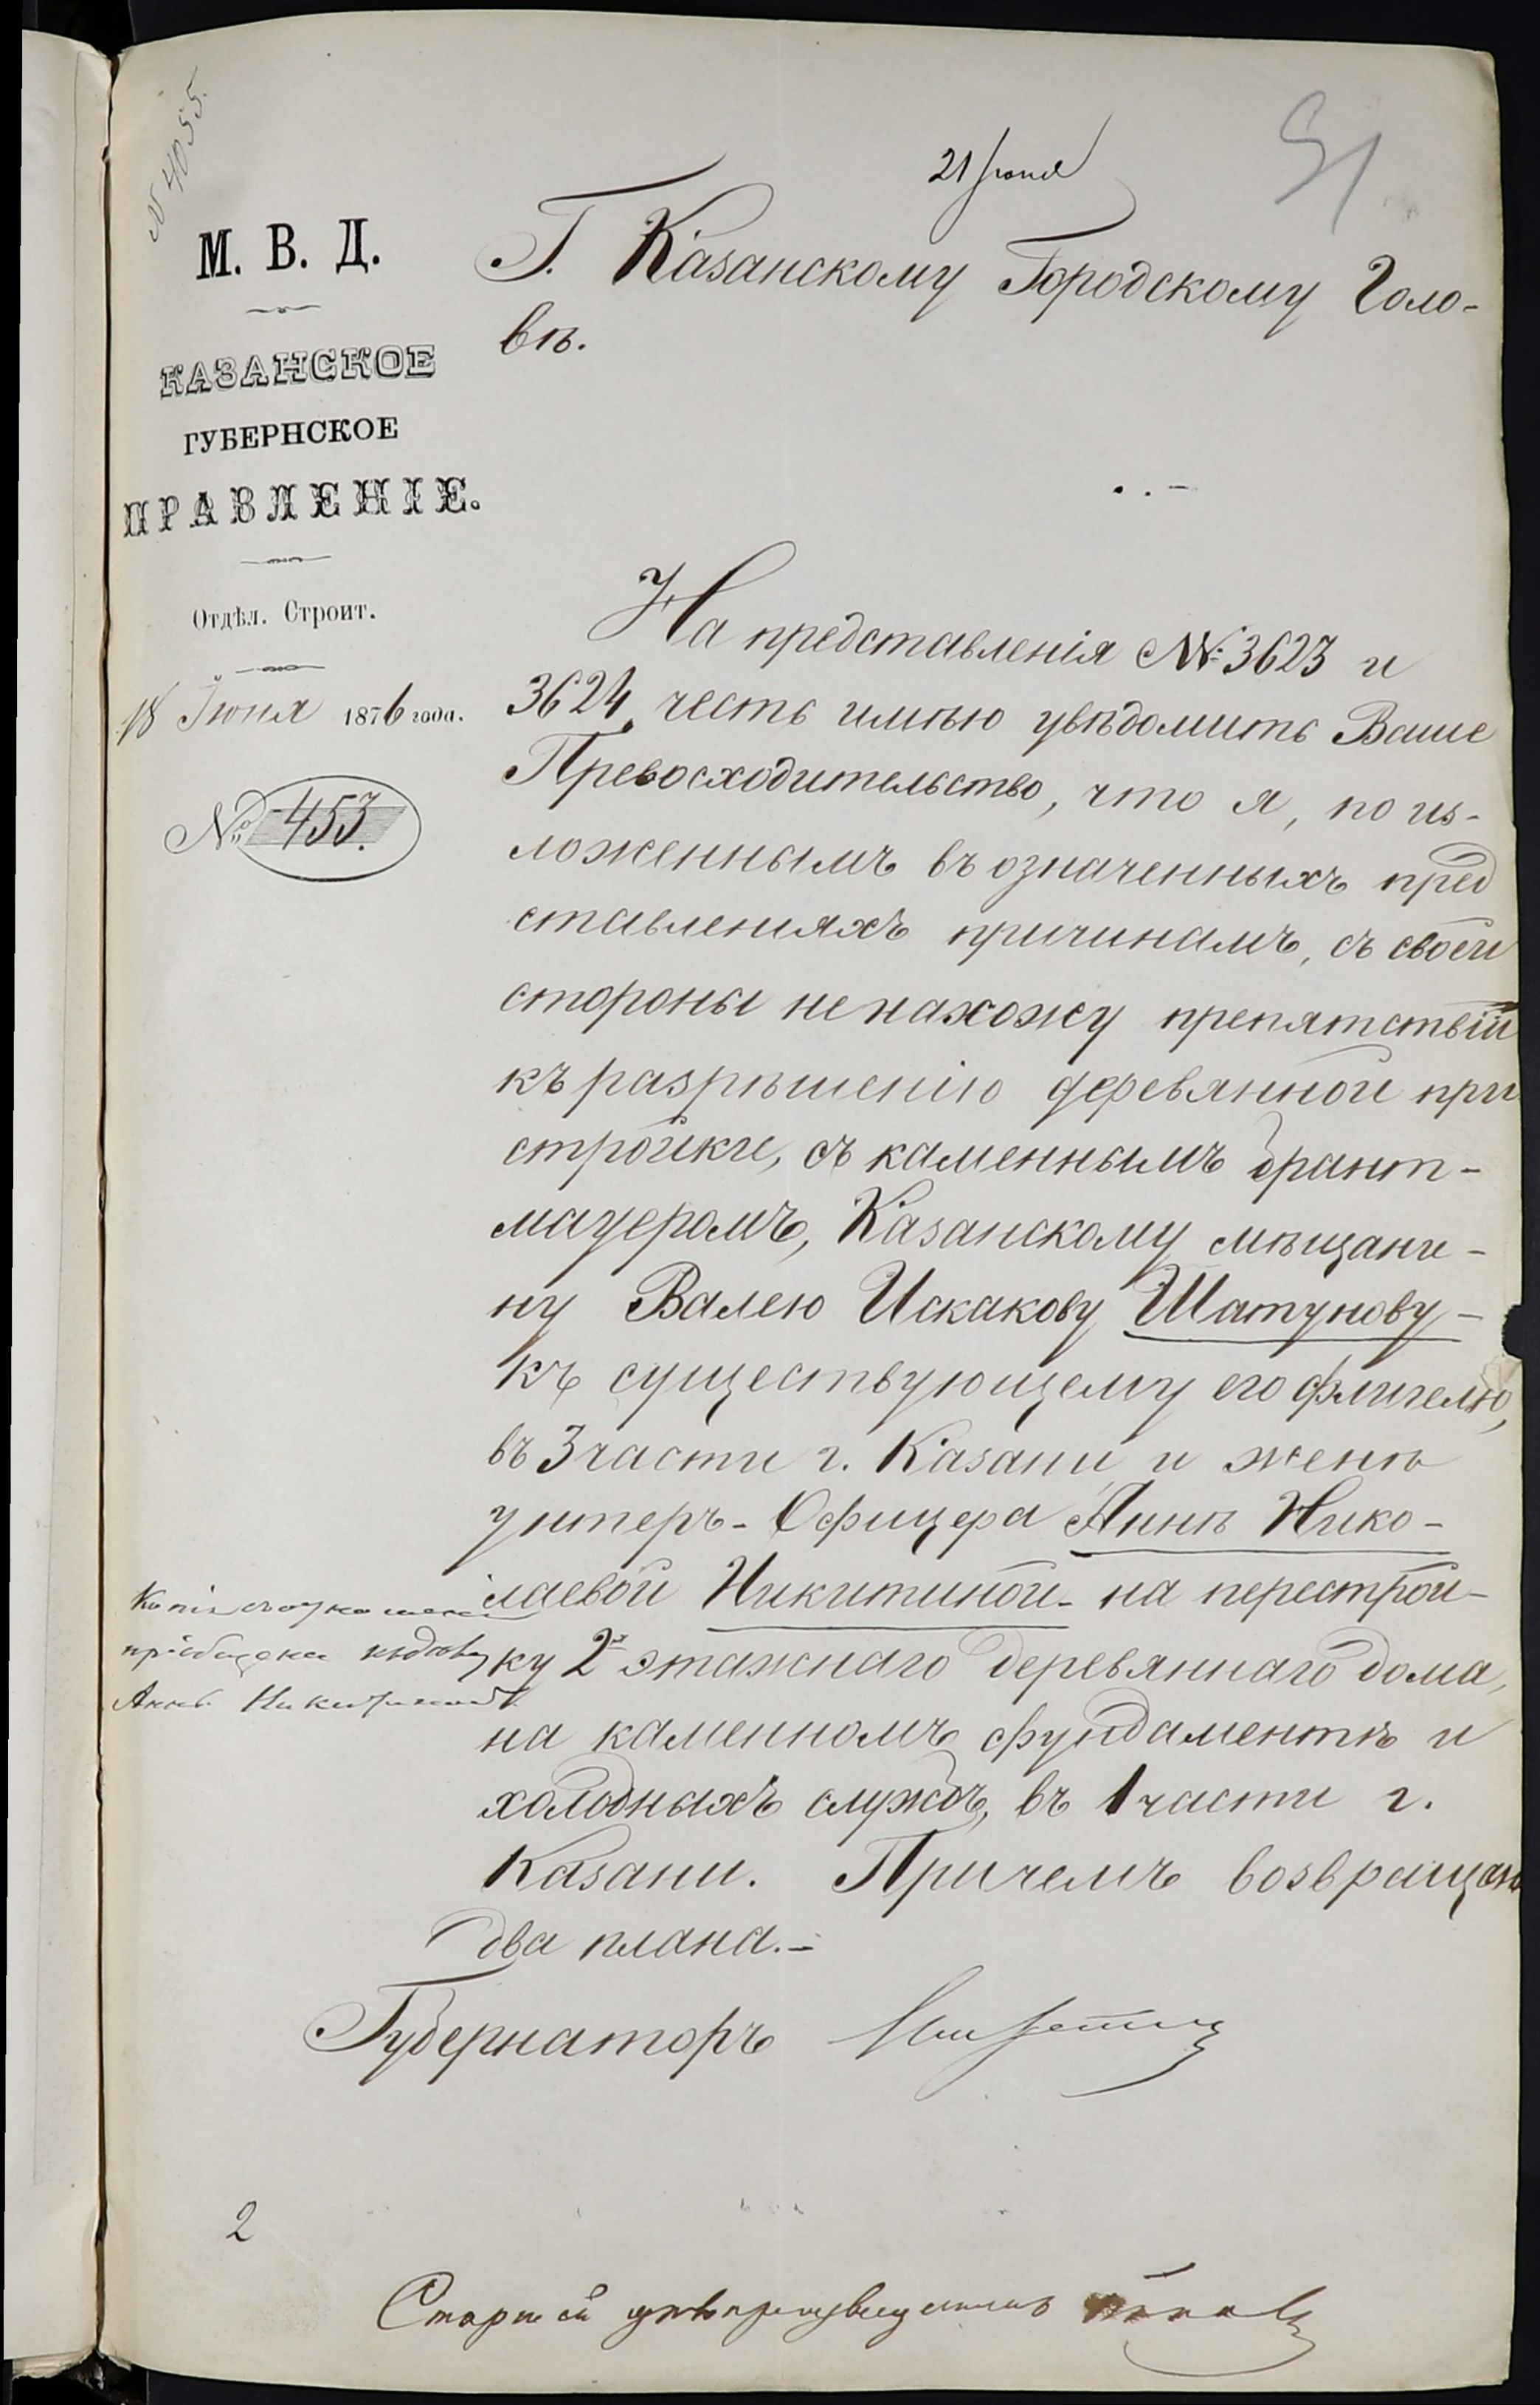 № 4055.
21 Іюня
51
М. В. Д.
КАЗАНСКОЕ
ГУБЕРНСКОЕ
ПРАВЛЕНІЕ.
Отдѣл. Строит.
18 Іюня 1876 года.
№ 453.
Г. Казанскому Городскому Голо-
вѣ.
На представленія №№ 3623 и
3624, честь имѣю увѣдомить Ваше
Превосходительство, что я, по из-
ложеннымъ въ означенныхъ пред
ставленияхъ причинамъ, съ своей
стороны не нахожу препятствій
къ разрѣшенію деревянной при
стройки, съ каменнымъ брант-
мауеромъ, Казанскому мѣщани-
ну Валею Искакову Шатунову -
къ существующему его флигелю,
въ 3 части г. Казани и женѣ
унтеръ-Офицера Аннѣ Нико-
лаевой Никитиной - на перестрой-
ку 2х этажнаго деревяннаго дома,
на каменномъ фундаментѣ и
холодныхъ службъ, въ 1 части г.
Казани. Причемъ возвращаю
два плана.-
Копія
пріобщена къ дѣлу
Анны Никитиной
Губернаторъ
2
Старшій дѣлопроизводитель